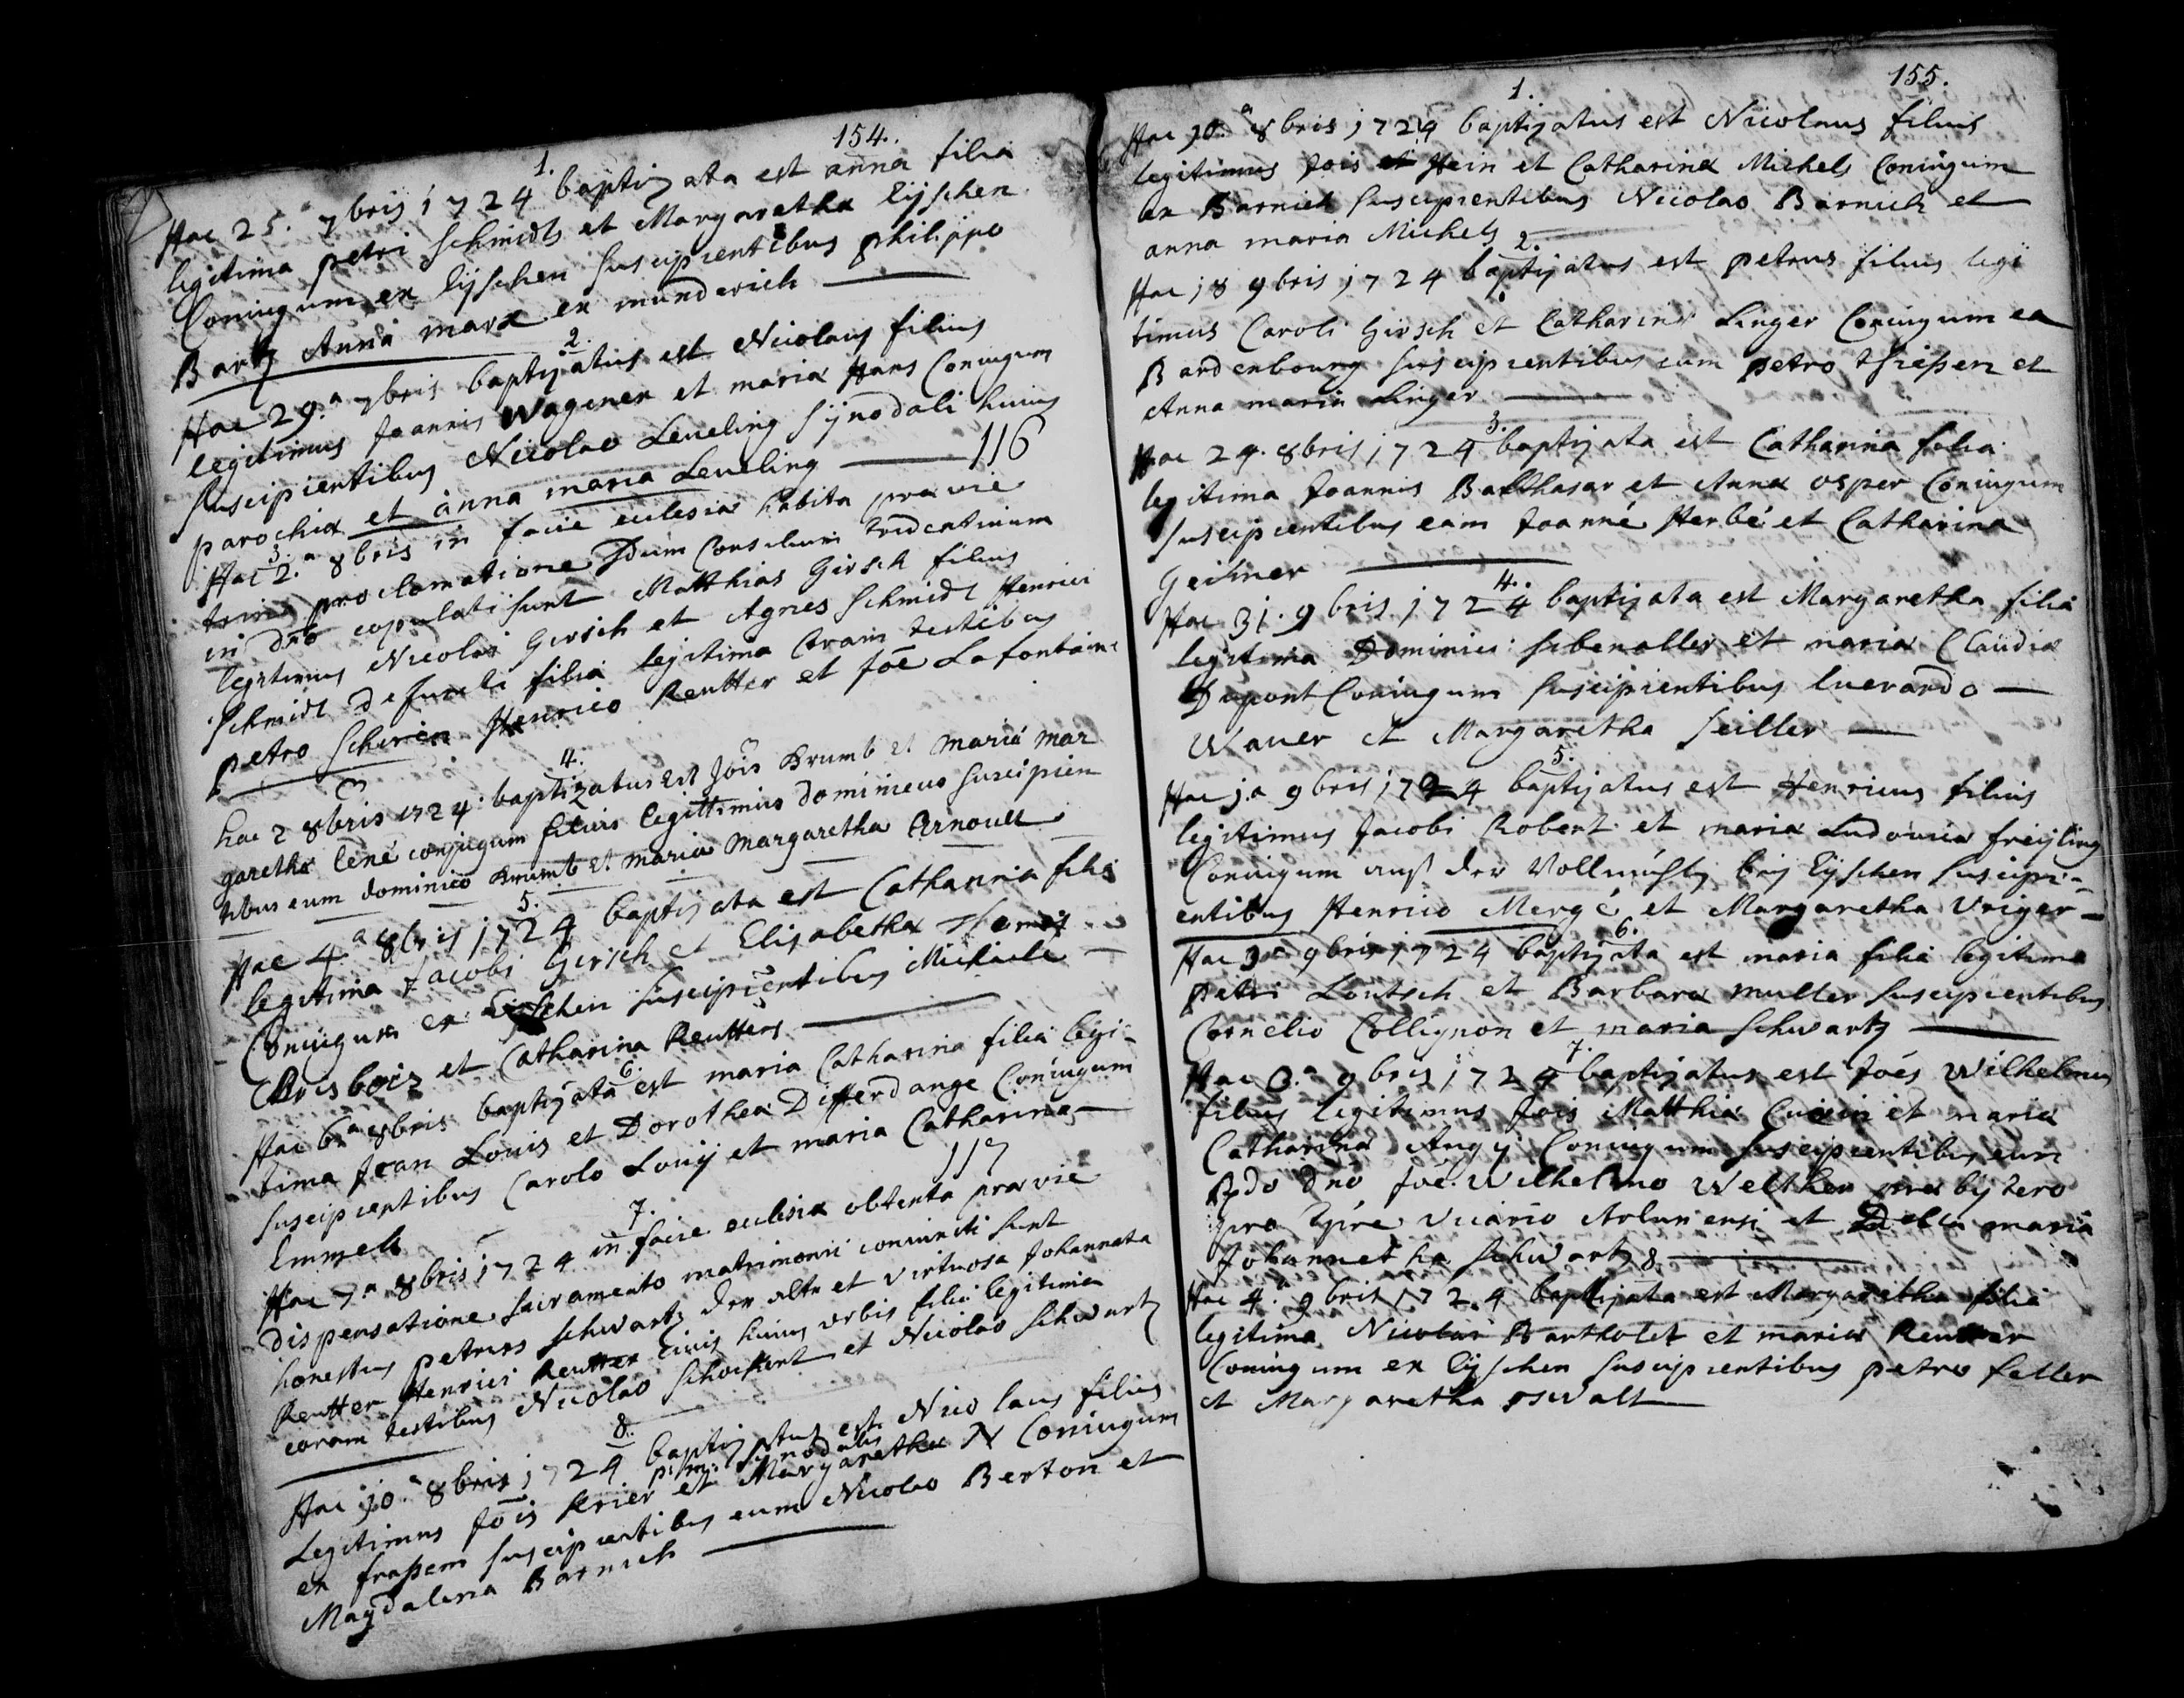 154.
1.
Hac 25. 7bris 1724 baptizata est anna filia
legitima petri Schmidts et Margaretha Eyschen
Coniugum ex Eyschen suscipientibus philippo
Bartz Anna marx ex
2.
Hac 29.a 7bris baptizatus est Nicolaus filius
legitimus Joannis Wagener et maria Hans Coniugum
suscipientibus Nicolao Leveling Synodali huius
parochiæ et anna maria Leveling
116
3.
Hac 2.a 8bris in facie ecclesiæ habita prævie
trina proclamatione Concilium tridentinum
in dno copulati sunt Matthias Girsch filius
legitimus Nicolai Girsch et Agnes Schmidt Henrici
Schmidt defuncti filia legitima Coram testibus
petro Henrico Reutter et Joe Lafontaine
4.
hac 2 8bris 1724 baptizatus est Jois Krumb et maria mar
garetha conjugum filius legittimus dominicus suscipien
tibus eum dominico Krumb et maria margaretha Arnoult
5.
Hac 4a 8bris 1724 baptizata est Catharina filia
legitima Jacobi Girsch et Elisabetha
Coniugum ex Eyschen suscipientibus Michaele
et Catharina Reutters
6.
Hac 6.a 8bris baptizata est maria Catharina filia legi-
tima Jean Louis et Dorothea Differdange Coniugum
suscipientibus Carolo Louij et maria Catharina
Emmels
117
7.
Hac 7.a 8bris 1724 in facie ecclesiæ obtenta prævie
dispensatione sacramento matrimonii coniuncti sunt
honestus petrus Schwartz der alte et virtuosa Johannata
Reutter Henrici Reutter civis huius urbis filia legitima
coram testibus Nicolao Schockert et Nicolao Schwartz
8.
Hac 10.a 8bris 1724 baptizatus est Nicolaus filius
legitimus Jois Krier et Margaretha N Coniugum
ex frassem suscipientibus eum Nicolao Berton et
Magdalena Barnich
155.
1.
Hac 10.a 8bris 1724 baptizatus est Nicolaus filius
legitimus Jois Hein et Catharina Michels Coniugum
ex Barnich suscipientibus Nicolao Barnich et
anna maria Michels
2.
Hac 18 9bris 1724 baptizatus est petrus filius legi
timus Caroli Girsch et Catharina Linger Coniugum ex
Bardenbourg suscipientibus eum petro et
Anna maria Linger
3.
Hac 24. 8bris 1724 baptizata est Catharina filia
legitima Joannis Balthasar et Anna osper Coniugum
suscipientibus eam Joanne Herbé et Catharina
4.
Hac 31. 9bris 1724 baptizata est Margaretha filia
legitima Dominici Sibenaller et maria Claudia
Dupont Coniugum suscipientibus Everardo
Waver et Margaretha Seiller
5.
Hac 1.a 9bris 1724 baptizatus est Henricus filius
legitimus Jacobi Robert et maria Ludovica freijling
Coniugum auß der bey Eyschen suscipi-
entibus Henrico Mergé et Margaretha Vriger
6.
Hac 3a 9bris 1724 baptizata est maria filia legitima
petri Loutsch et Barbara muller suscipientibus
Cornelio Collignon et maria Schwartz
7.
Hac 9bris 1724 baptizatus est Joes Wilhelmus
filius legitimus Jois Matthiæ et maria
Catharina Coniugum suscipientibus eum
Rdo Dno Joe. Wilhelmo Welther præbytero
vicario Arlunensi et maria
Johannetha Schwartz
8.
Hac 4.a 9bris 1724 baptizata est Margaretha filia
legitima Nicolai Bartholet et maria Reutter
Coniugum ex Eyschen suscipientibus petro feller
et Margaretha oswalt